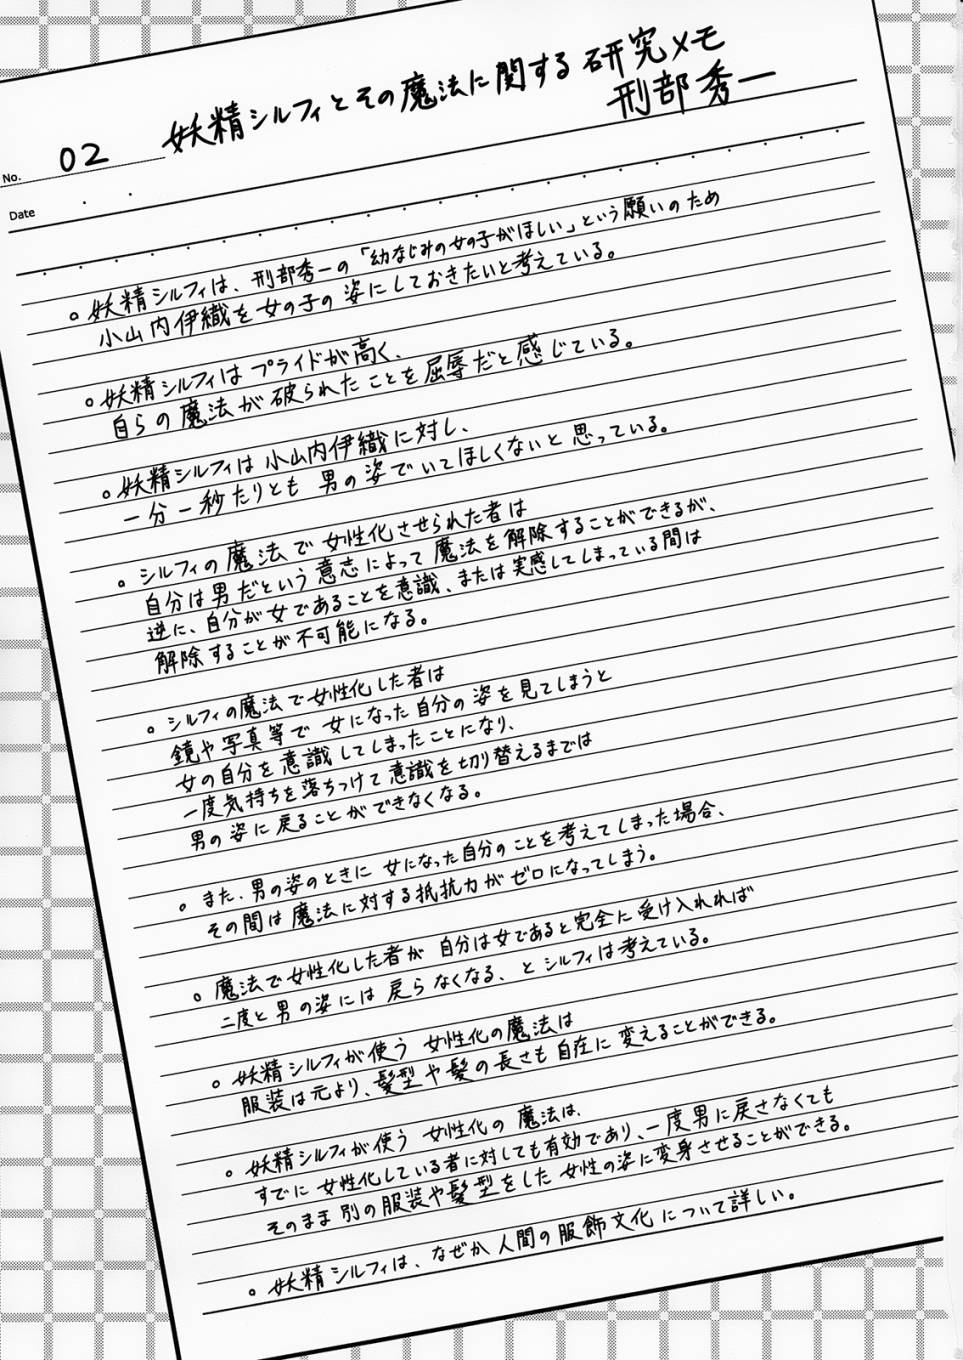 02 妖精シルフィとその魔法に関する研究メモ
刑部秀一
No.
Date
。妖精シルフィは、刑部秀一の「幼なじみの女の子がほしい」という願いのため
小山内伊織を女の子の姿にしておきたいと考えている。
。妖精シルフィはプライドが高く、
自らの魔法が破られたことを屈辱だと感じている。
。妖精シルフィは小山内伊織に対し、
一分一秒たりとも男の姿でいてほしくないと思っている。
。シルフィの魔法で女性化させられた者は
自分は男だという意志によって魔法を解除することができるが、
逆に、自分が女であることを意識、または実感してしまっている間は
解除することが不可能になる。
。シルフィの魔法で女性化した者は
鏡や写真等で女になった自分の姿を見てしまうと
女の自分を意識してしまったことになり、
一度気持ちを落ちつけて意識を切り替えるまでは
男の姿に戻ることができなくなる。
。また、男の姿のときに女になった自分のことを考えてしまった場合、
その間は魔法に対する抵抗力がゼロになってしまう。
。魔法で女性化した者が自分は女であると完全に受け入れれば
二度と男の姿には戻らなくなる、とシルフィは考えている。
。妖精シルフィが使う女性化の魔法は
服装は元より、髪型や髪の長さも自在に変えることができる。
。妖精シルフィが使う女性化の魔法は、
すでに女性化している者に対しても有効であり、一度男に戻さなくても
そのまま別の服装や髪型をした女性の姿に変身させることができる。
。妖精シルフィは、なぜか人間の服飾文化について詳しい。